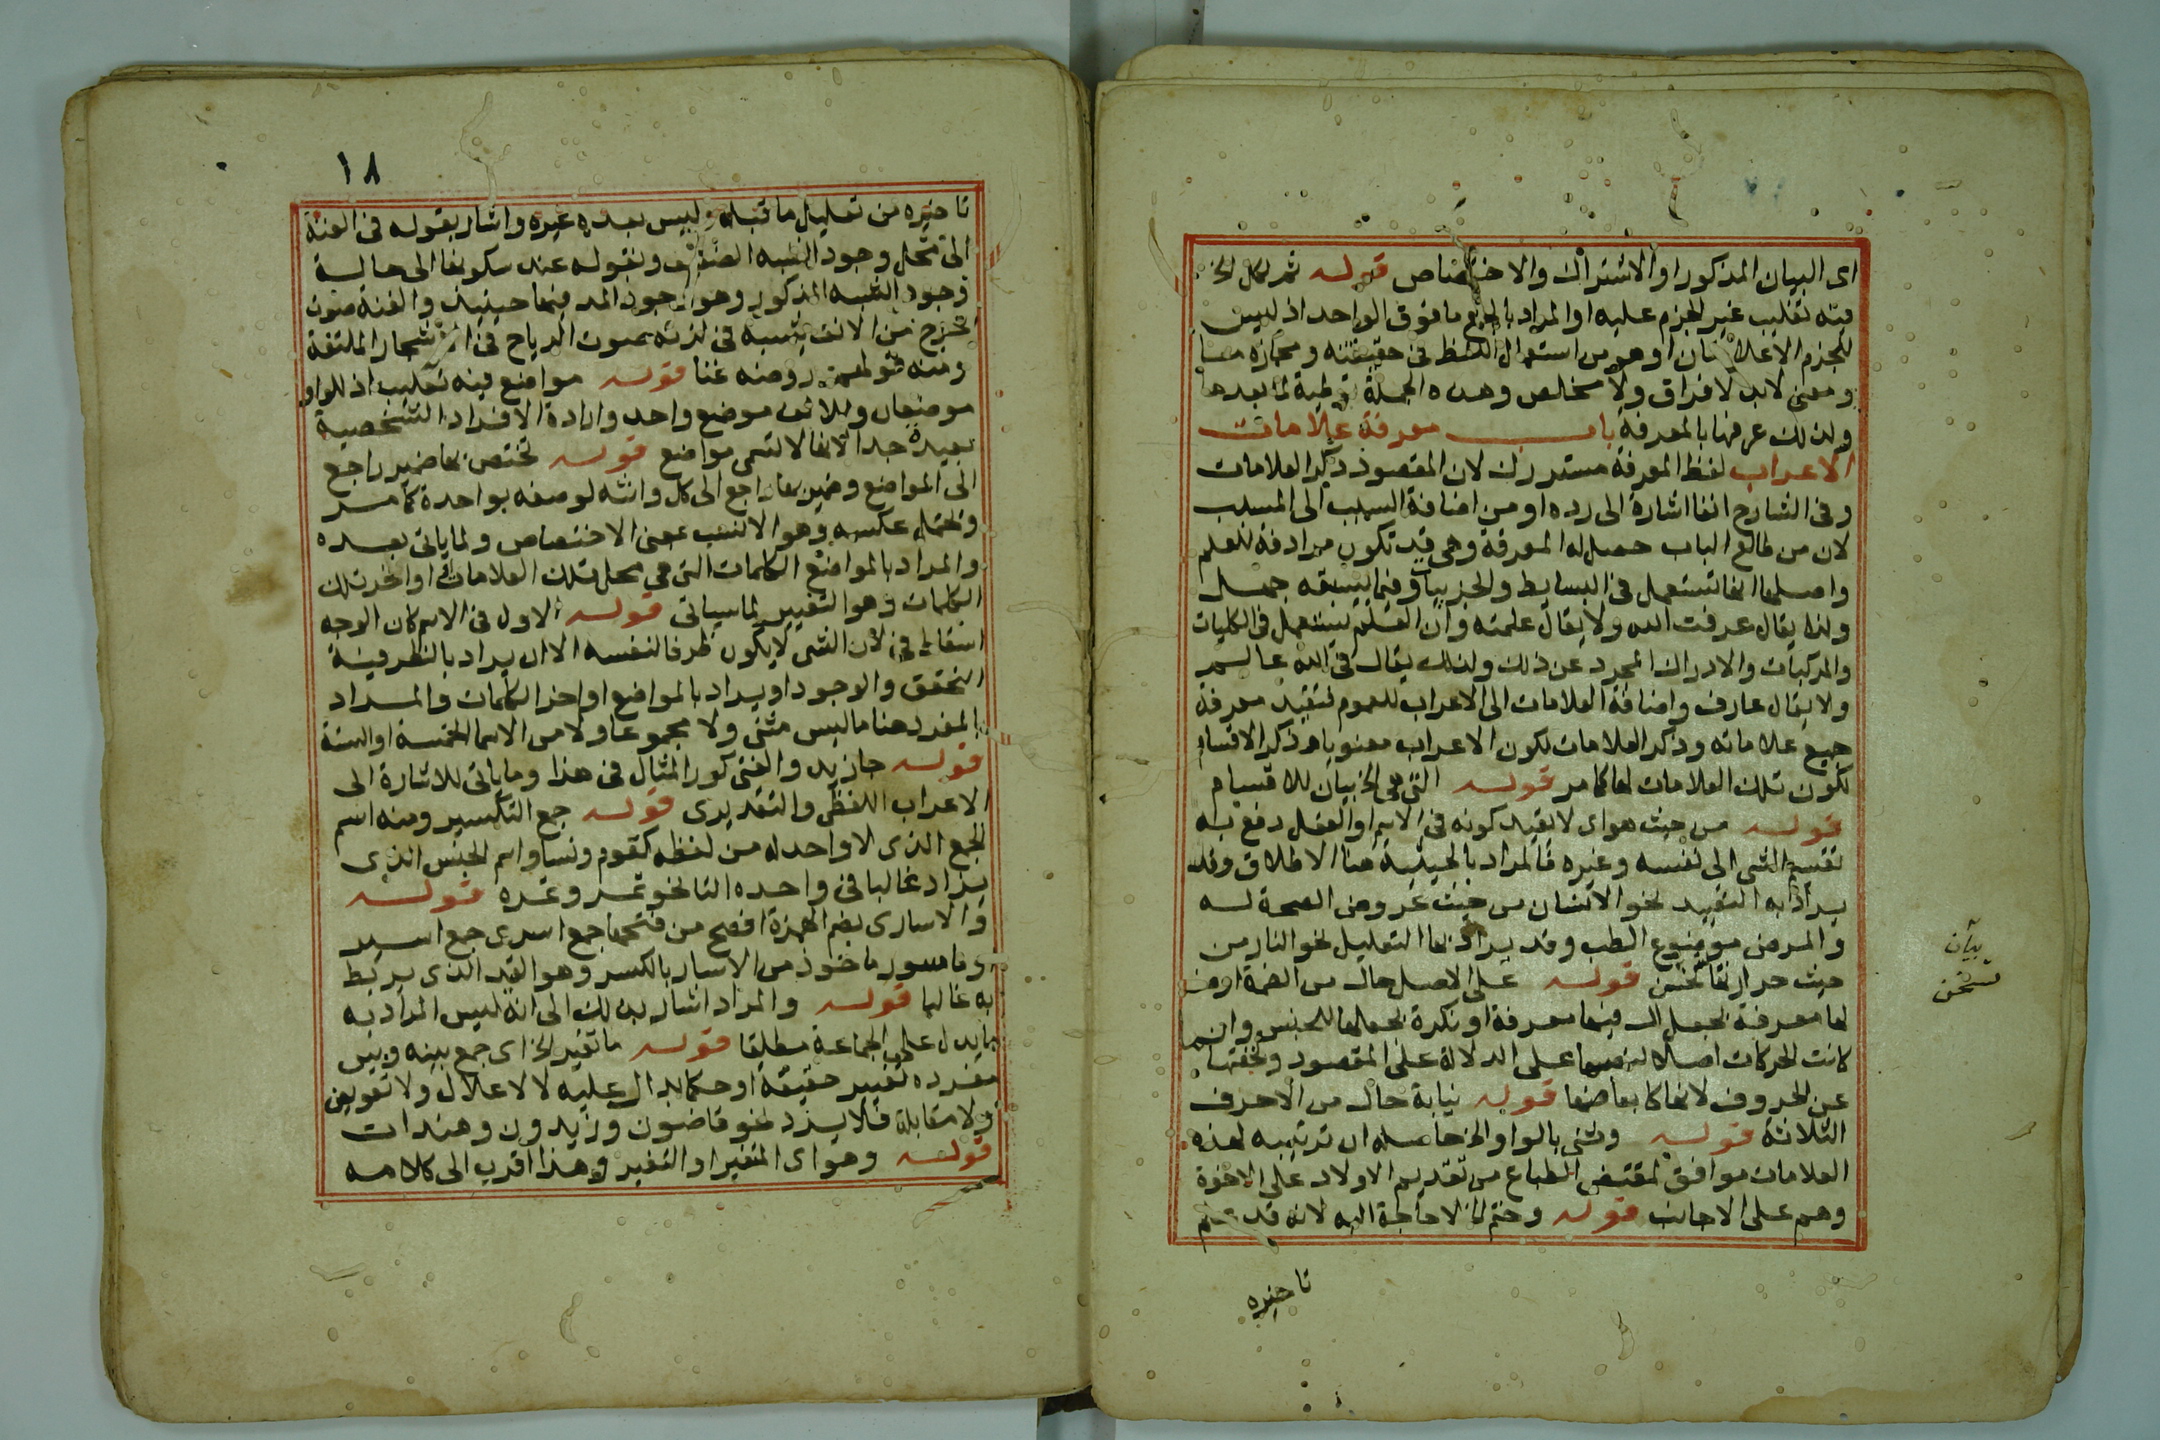 اى البيان المذكور او الاشتراك والاختصاص قوله ثم لكل الخ
فيه تغليب غير الجزم عليه او المراد بالجمع ما فوق الواحد اذ ليس
للجزم الا علامتان او هو من استعمال اللفظ فى حقيقته ومجازه معا
ومعنى لابد لا فراق ولا مخلص وهذه الجملة توطية لما بعدها
ولذلك عرفها بالمعرفة باب معرفة علامات
الاعراب لفظ المعرفة مستدرك لان المقصود ذكر العلامات
وفى الشارح انفا اشارة الى رده او من اضافة السبب الى المسبب
لان من طالع الباب حصل له المعرفة وهى قد تكون مرادفة للعلم
واصلها انها تستعمل فى البسايط والجزييات وفيما يسبقه جهل
ولذا يقال عرفت الله ولا يقال علمته وان العلم يستعمل فى الكليات
والمركبات والادراك المجرد عن ذلك ولذلك يقال فى الله عالم
ولا يقال عارف واضافة العلامات الى الاعراب للعموم لتفيد معرفة
جميع علاماته وذكر العلامات لكون الاعراب معنويا وذكر الاقسام
لكون تلك العلامات لها كما مر قوله التى هى الخ بيان للاقسام
قوله من حيث هو اى لا بقيد كونه فى الاسم او الفعل دفع به
تقسيم الشى الى نفسه وغيره فالمراد بالحيثية هنا الاطلاق وقد
يراد به التقييد نحو الانسان من حيث عروض الصحة له
والمرض موضوع الطب وقد يراد بها التعليل نحو النار من
حيث حرارتها تسخن قوله على الاصل حال من الضمة او من
لها معرفة بجعل ال فيها معرفة او نكرة بجعلها للجنس وانما
كانت الحركات اصلا لنصها على الدلالة على المقصود ولخفتها
عن الحروف لانها كابعاضها قوله نيابة حال من الاحرف
الثلاثة قوله وثنى بالواو الخ حاصله ان ترتيبه لهذه
العلامات موافق لمقتضى الطباع من تقديم الاولاد على الاخوة
وهم على الاجانب قوله وختم الخ لا حاجة اليه لانه قد علم
تاخيره
بيان
تسخن
١٨
تاخيره من تعليل ما قبله وليس بعده غيره واشار بقوله فى الغنة
الى محل وجود الشبه الضعيف وبقوله عند سكونها الى حالة
وجود الشبه المذكور وهو وجود المد فيها حينيذ والغنة صوت
يخرج من الانف يشبه فى لذته صوت الرياح فى الاشجار الملتفة
ومنه قولهم روضه غنا قوله مواضع فيه تغليب اذ للواو
موضعان وللالف موضع واحد وارادة الافراد الشخصية
بعيدة جدا لانها لا تسمى مواضع قوله تختص بها ضمير راجع
الى المواضع وضمير بها راجع الى كل وانثه لوصفه بواحدة كما مر
ويحتمل عكسه وهو الانسب بمعنى الاختصاص ولما ياتى بعده
والمراد بالمواضع الكلمات التى هى محل تلك العلامات او اواخر تلك
الكلمات وهو التغيير لما سياتى قوله الاول فى الاسم كان الوجه
اسقاط فى لان الشى لا يكون ظرفا لنفسه الا ان يراد بالظرفية
التحقق والوجود او يراد بالمواضع اواخر الكلمات والمراد
بالمفرد هنا ما ليس مثنى ولا مجموعا ولا من الاسما الخمسة او الستة
قوله جا زيد والفتى كرر المثال فى هذا وما ياتى للاشارة الى
الاعراب اللفظى والتقديرى قوله جمع التكسير ومنه اسم
الجمع الذى لا واحد له من لفظه كقوم ونسا واسم الجنس الذى
يزاد غالبا فى واحده التا نحو تمر وتمره قوله
والاسارى بضم الهمزة افصح من فتحها جمع اسرى جمع اسير
وماسور ماخوذ من الاسار بالكسر وهو القد الذى يربط
به غالبا قوله والمراد اشار بذلك الى انه ليس المراد به
ما يدل على الجماعة مطلقا قوله ما تغير الخ اى جمع بينه وبين
مفرده تغيير حقيقة او حكما بدال عليه لا لاعلال ولا تعويض
ولا مقابلة فلا يرد نحو قاضون وزيدون وهندات
قوله وهو اى المتغير او التغير وهذا اقرب الى كلامه